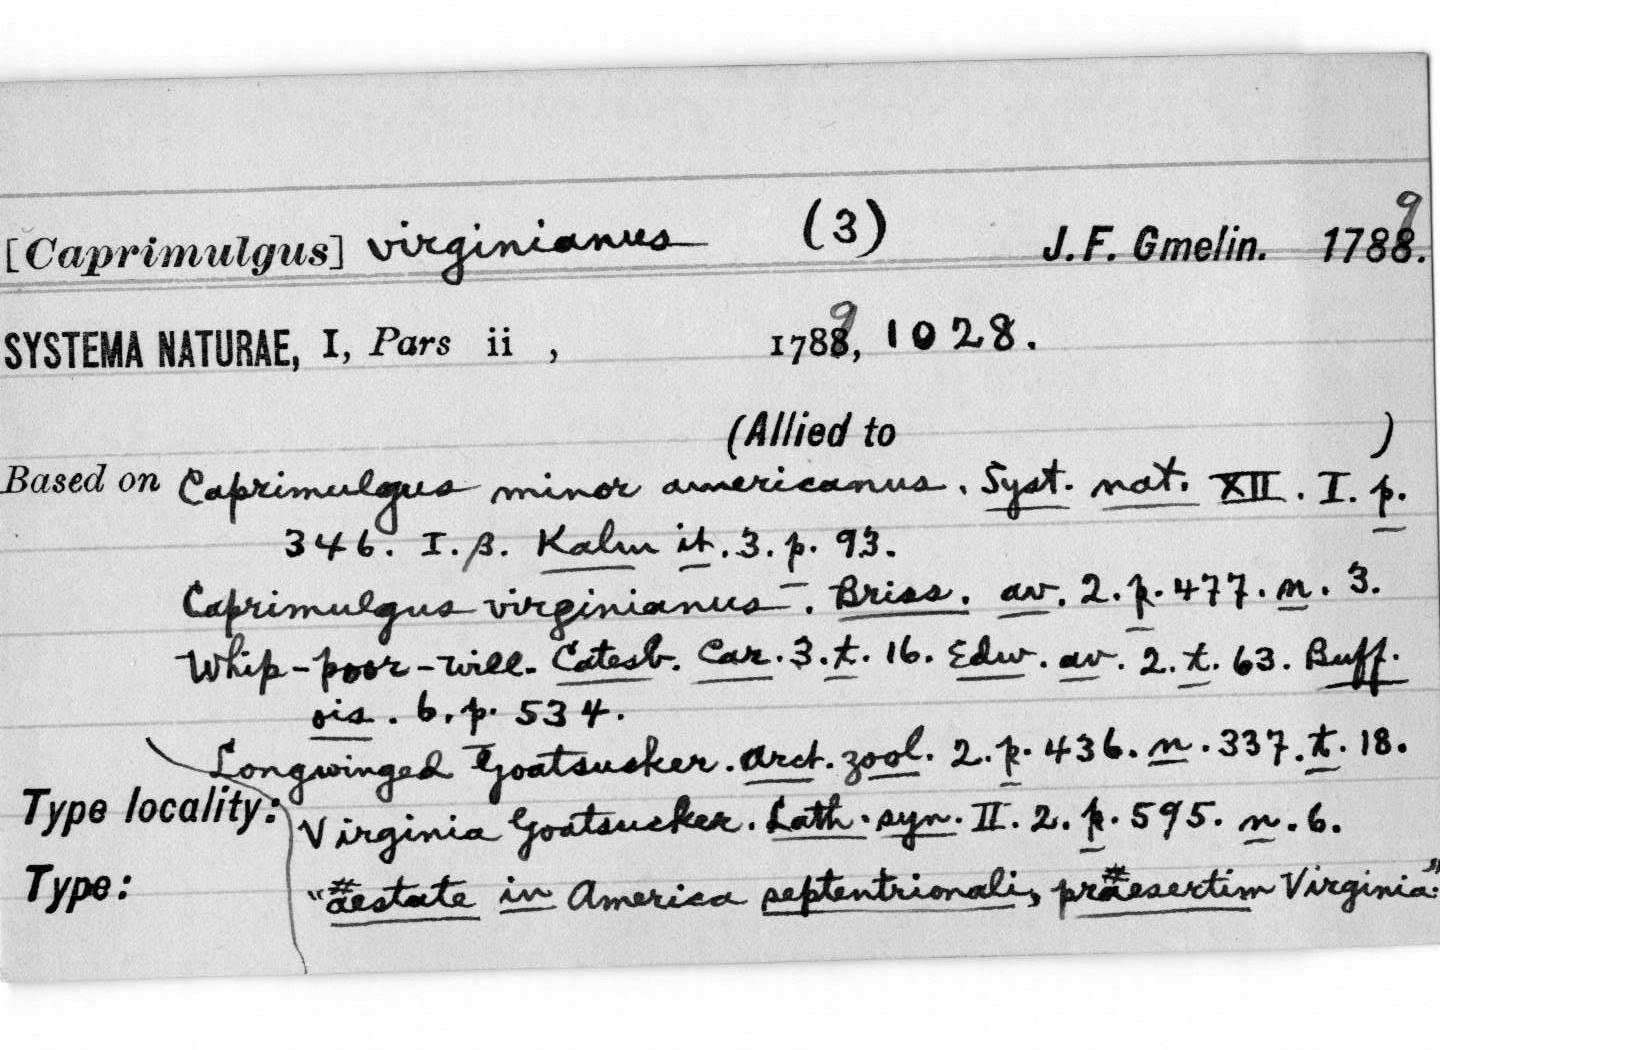 [Caprimulgus] virginianus (3) J. F. Gmelin. 1789.
SYSTEMA NATURAE, I, Pars ii , 1789, 1028.
(Allied to )
Based on Caprimulgus minor americanus. Syst. nat. XII. I. p.
346. I. β. Kalm it. 3. p. 93.
Caprimulgus virginianus. Briss. av. 2. p. 477. n. 3.
Whip-poor-will. Catesb. Car. 3. t. 16. Edw. av. 2. t. 63. Buff.
ois. 6. p. 534.
Longwinged Goatsucker. Arct. zool. 2. p. 436. n. 337. t. 18.
Type locality: Virginia Goatsucker. Lath. syn. II. 2. p. 595. n. 6.
Type: "aestate in America septentrionali, praesertim Virginia."